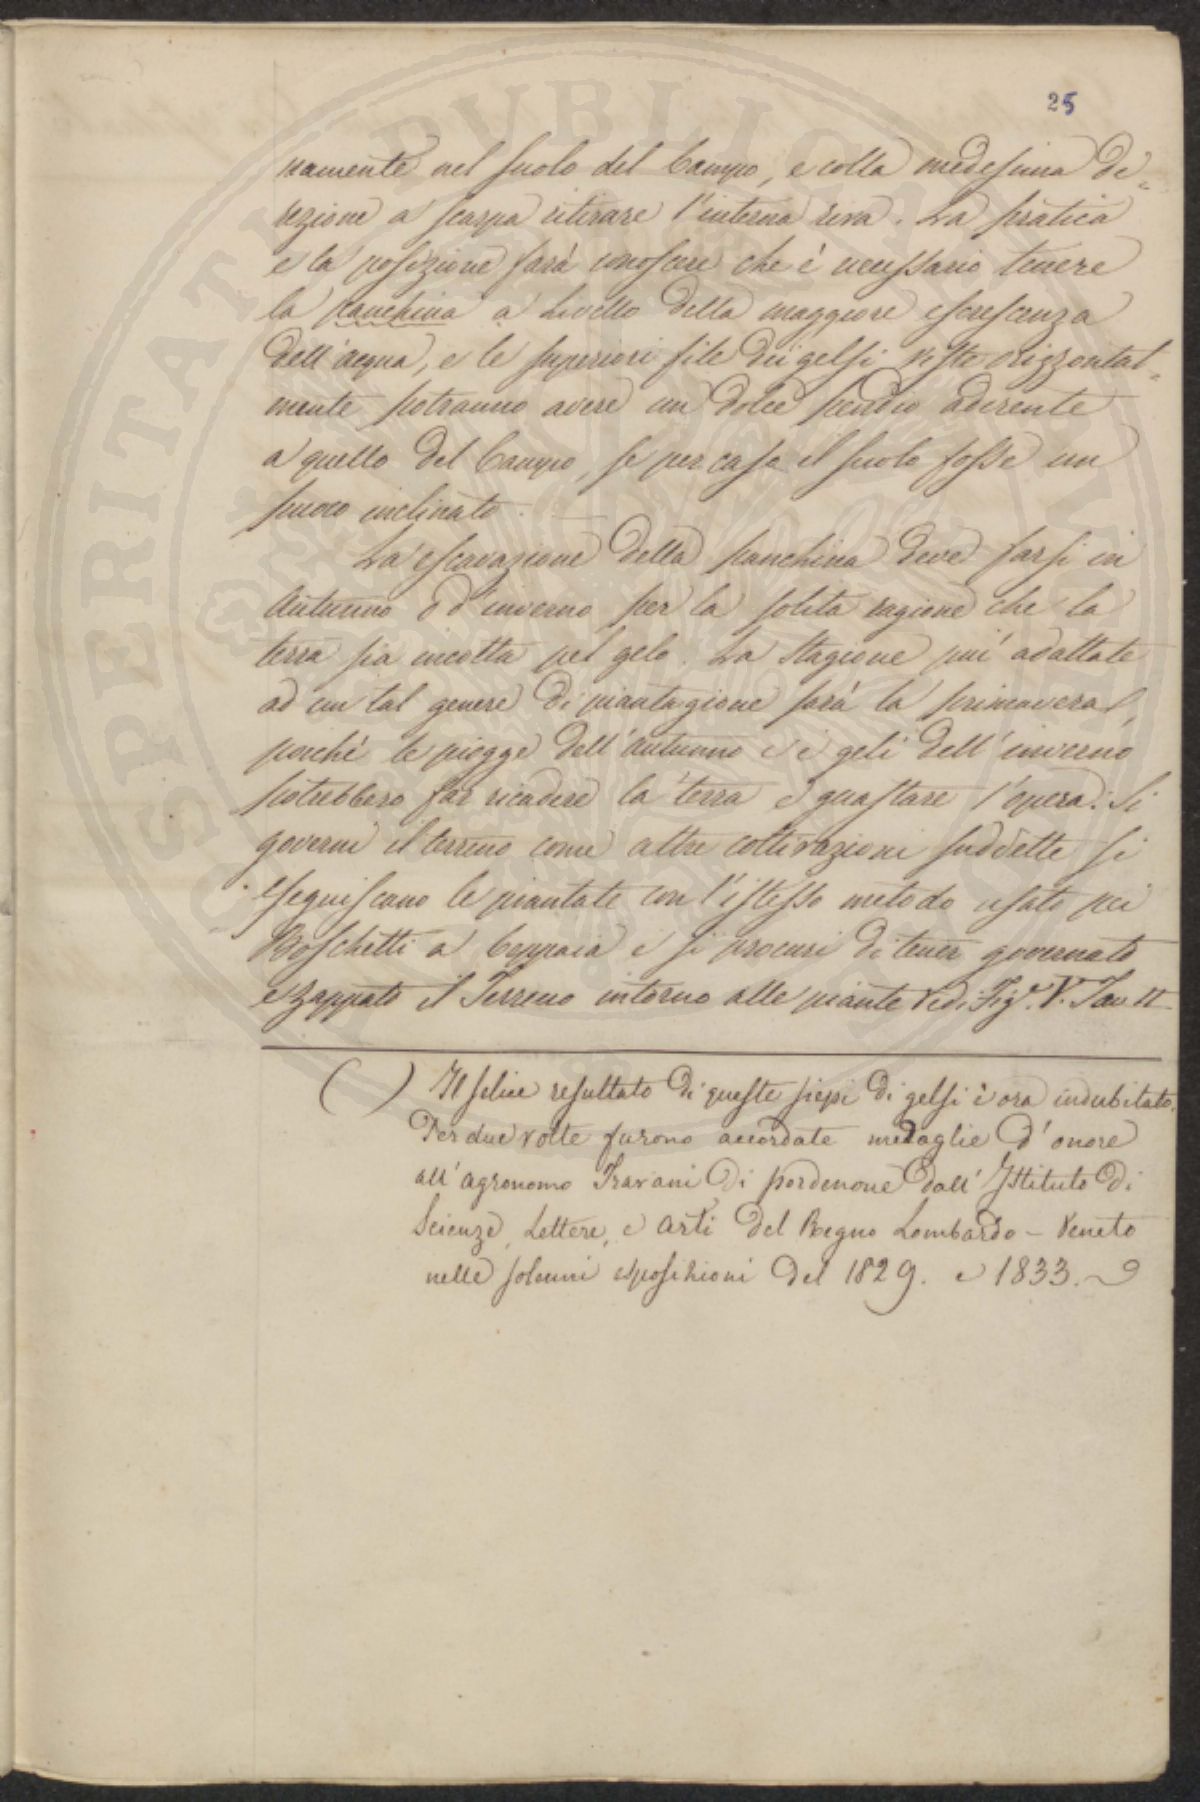 25
namente nel suolo del Campo, e colla medesima di=
rezione a scarpa ritirare l'interna riva. La pratica
e la posizione farà conoscere che è necessario tenere
la panchina a livello della maggiore escrescenza
dell'acqua, e le superiori file dei gelsi viste orizzontal=
mente potranno avere un dolce pendio aderente
a quello del Campo, se per caso il suolo fosse un
puoco inclinato.
La escavazione della panchina deve farsi in
Autunno o d'inverno per la solita ragione che la
terra sia incotta pel gelo. La Stagione più adattate
ad un tal genere di piantagione sarà la primavera,
perchè le piogge dell'autunno e i geli dell'inverno
potrebbero far ricadere la terra e guastare l'opera. Si
governi il terreno come altre coltivazioni suddette si
eseguiscano le piantate con l'istesso metodo usato pei
Boschetti a Ceppaia e si procuri di tener governato
e zappato il Terreno intorno alle piante Vedi Fig.ª V. Tav II
( ) Il felice resultato di queste siepi di gelsi è ora indubitato.
Per due volte furono accordate medaglie d'onore
all'agronomo Travani di pordenone dall'Istituto di
Scienze, Lettere, e arti del Regno Lombardo - Veneto
nelle solenni esposizioni del 1829. e 1833.
SPERITATI PUBLICAE